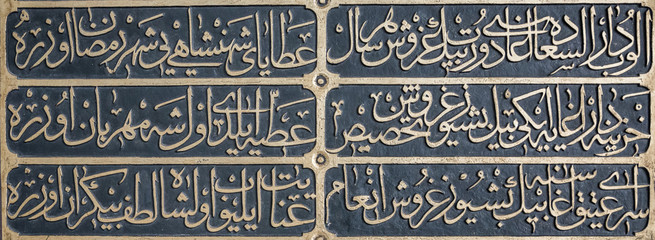 الوب دار السعاده اغاسی دورت بیك غروش هر سال
عطایای شهنشاهی یی شهر رمضان اوزره
خزینه دار اغایه ایكی بیك بشیوز غروش تخصیص
عطیه ایلدی اول شه مهربان اوزره
سرای عتیق اغاسنه بیك بشیوز غروش انعام
عنایت ایلیوب اول شاه لطف بیكران اوزره